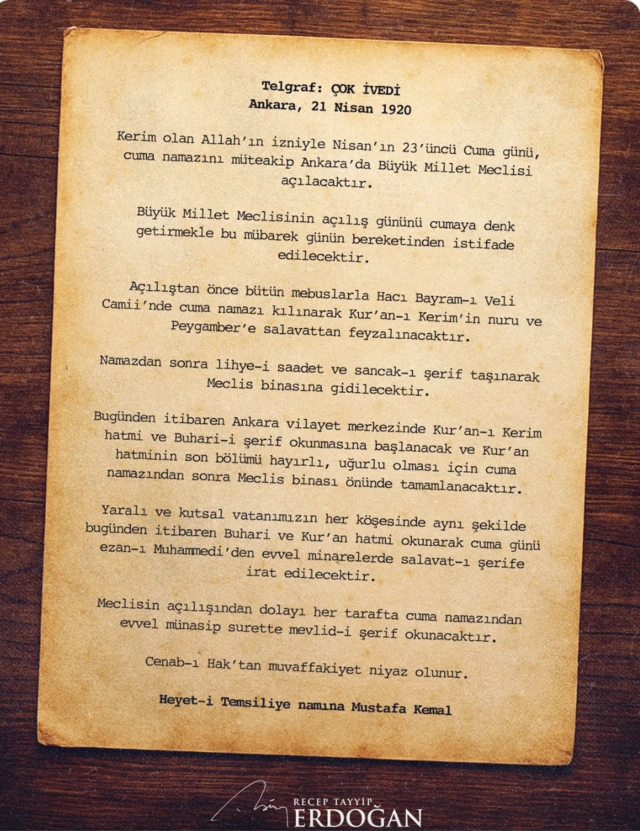 Telgraf: ÇOK İVEDİ
Ankara, 21 Nisan 1920
Kerim olan Allah'ın izniyle Nisan'ın 23'üncü Cuma günü,
cuma namazını müteakip Ankara'da Büyük Millet Meclisi
açılacaktır.
Büyük Millet Meclisinin açılış gününü cumaya denk
getirmekle bu mübarek günün bereketinden istifade
edilecektir.
Açılıştan önce bütün mebuslarla Hacı Bayram-ı Veli
Camii'nde cuma namazı kılınarak Kur'an-ı Kerim'in nuru ve
Peygamber'e salavattan feyzalınacaktır.
Namazdan sonra lihye-i saadet ve sancak-ı şerif taşınarak
Meclis binasına gidilecektir.
Bugünden itibaren Ankara vilayet merkezinde Kur'an-ı Kerim
hatmi ve Buhari-i şerif okunmasına başlanacak ve Kur'an
hatminin son bölümü hayırlı, uğurlu olması için cuma
namazından sonra Meclis binası önünde tamamlanacaktır.
Yaralı ve kutsal vatanımızın her köşesinde aynı şekilde
bugünden itibaren Buhari ve Kur'an hatmi okunarak cuma günü
ezan-ı Muhammedi'den evvel minarelerde salavat-ı şerife
irat edilecektir.
Meclisin açılışından dolayı her tarafta cuma namazından
evvel münasip surette mevlid-i şerif okunacaktır.
Cenab-ı Hak'tan muvaffakiyet niyaz olunur.
Heyet-i Temsiliye namına Mustafa Kemal
RECEP TAYYİP
ERDOĞAN